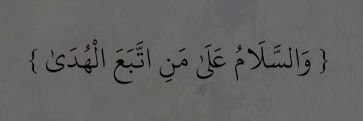 { وَالسَّلَامُ عَلَىٰ مَنِ اتَّبَعَ الْهُدَىٰ }